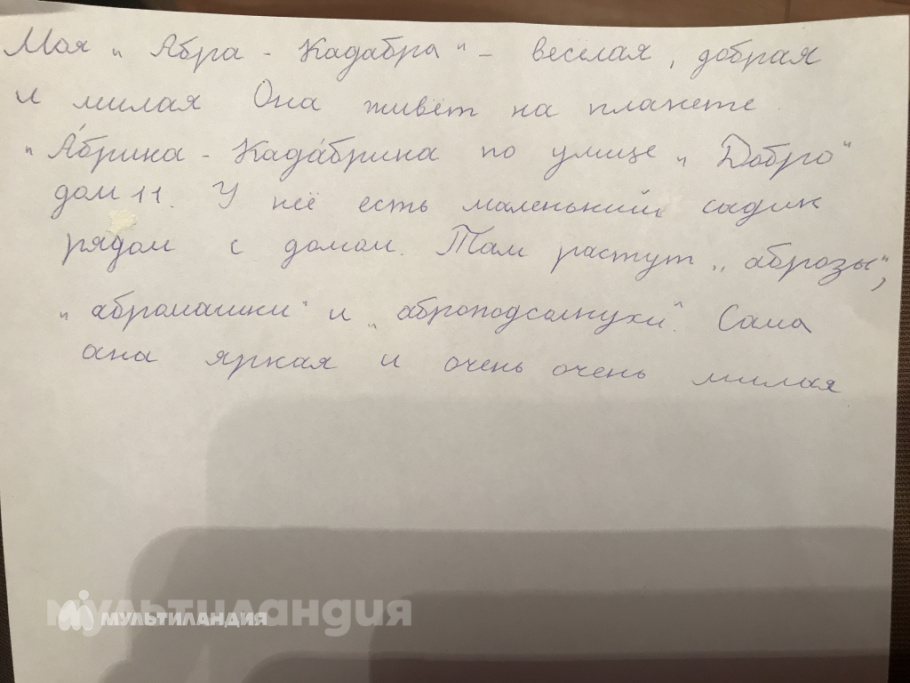 Моя „Абра - Кадабра" – веселая, добрая
и милая Она живёт на планете
„А́брика - Када́брина по улице „Добро"
дом 11. У неё есть маленький садик
рядом с домом. Там растут „аброзы",
„абромашки" и „аброподсолнухи". Сама
она яркая и очень очень милая
мультиландия
МУЛЬТИЛАНДИЯ